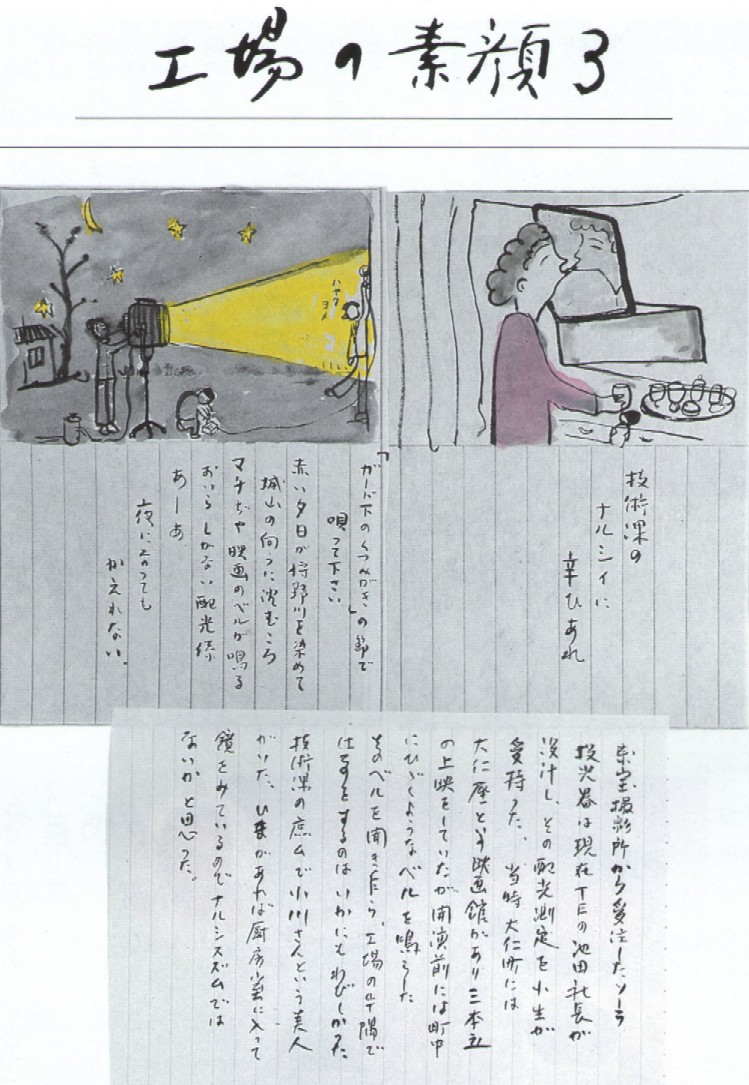 工場の素顔3
技術課の
ナルシイに
幸ひあれ
「ガード下のくつみがき」の節で
唄って下さい
赤い夕日が狩野川を染めて
城山の向うに沈むころ
マチぢや映画のベルが鳴る
おいらしがない配光係
あーあ
夜になっても
かえれない。
ハヤク
東宝撮影所から受注したソーラ
投光器は現在TEの池田社長が
設計し、その配光測定を小生が
受持った、当時大仁町には
大仁座という映画館があり三本立
の上映をしていたが開演前には町中
にひびくようなベルを鳴らした
そのベルを聞き乍ら、工場の片隅で
仕事をするのはいかにもわびしかった
技術課の庶ムで小川さんという美人
がいた。ひまがあれば厨房室に入って
鏡をみているのでナルシズムでは
ないかと思った。